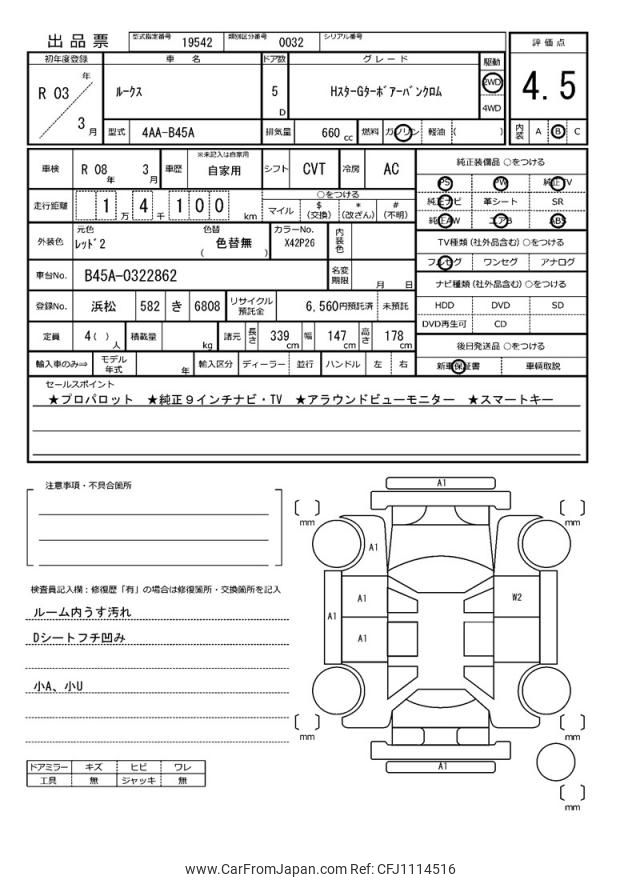 出品票 型式指定番号 19542 類別区分番号 0032 シリアル番号
評価点
4.5
内装 A B C
初年度登録 車名 ドア数 グレード 駆動
R 03 年 3 月
ルークス
5 D
HスターGターボアーバンクロム
2WD
4WD
型式 4AA-B45A 排気量 660 cc 燃料 ガソリン 軽油 ( )
車検 R 08 年 3 月 車歴 ※未記入は自家用 自家用 シフト CVT 冷房 AC
走行距離 1 万 4 千 1 0 0 km
○をつける
マイル $ (交換) * (改ざん) # (不明)
外装色 元色 レッド2 色替 ( 色替無 ) カラーNo. X42P26 内装色
車台No. B45A-0322862 名変期限 月 日
登録No. 浜松 582 き 6808 リサイクル預託金 6,560円預託済 未預託
定員 4( ) 人 積載量 kg 諸元 長さ 339 cm 幅 147 cm 高さ 178 cm
輸入車のみ⇒ モデル年式 年 輸入区分 ディーラー 並行 ハンドル 左 右
純正装備品 ○をつける
PS PW 純正TV
純正ナビ 革シート SR
純正AW エアB ABS
TV種類 (社外品含む) ○をつける
フルセグ ワンセグ アナログ
ナビ種類 (社外品含む) ○をつける
HDD DVD SD
DVD再生可 CD
後日発送品 ○をつける
新車保証書 車輌取説
セールスポイント
★プロパロット ★純正9インチナビ・TV ★アラウンドビューモニター ★スマートキー
注意事項・不具合箇所
検査員記入欄：修復歴「有」の場合は修復箇所・交換箇所を記入
ルーム内うす汚れ
Dシートフチ凹み
小A、小U
ドアミラー キズ ヒビ ワレ
工具 無 ジャッキ 無
A1
mm
mm
A1
A1
W2
A1
A1
mm
mm
A1
mm
www.CarFromJapan.com Ref: CFJ1114516